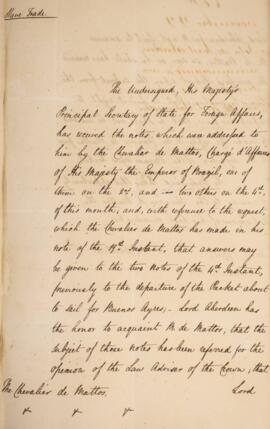 Slave Trade.
The Undersigned, His Majesty's
Principal Secretary of State for Foreign Affairs,
has received the notes, which were addressed to
him by the Chevalier de Mattos, Chargé d'Affaires
of His Majesty the Emperor of Brazil, one of
them on the 2d. and two others on the 4th.
of this month, and, with reference to the request,
which the Chevalier de Mattos has made in his
note of the 19th Instant, that answers may
be given to the two Notes of the 4th Instant,
previously to the departure of the Packet about
to sail for Buenos Ayres; Lord Aberdeen has
the honor to acquaint M. de Mattos, that the
subject of those notes has been referred for the
opinion of the Law Advisers of the Crown; that
Lord
The Chevalier de Mattos.